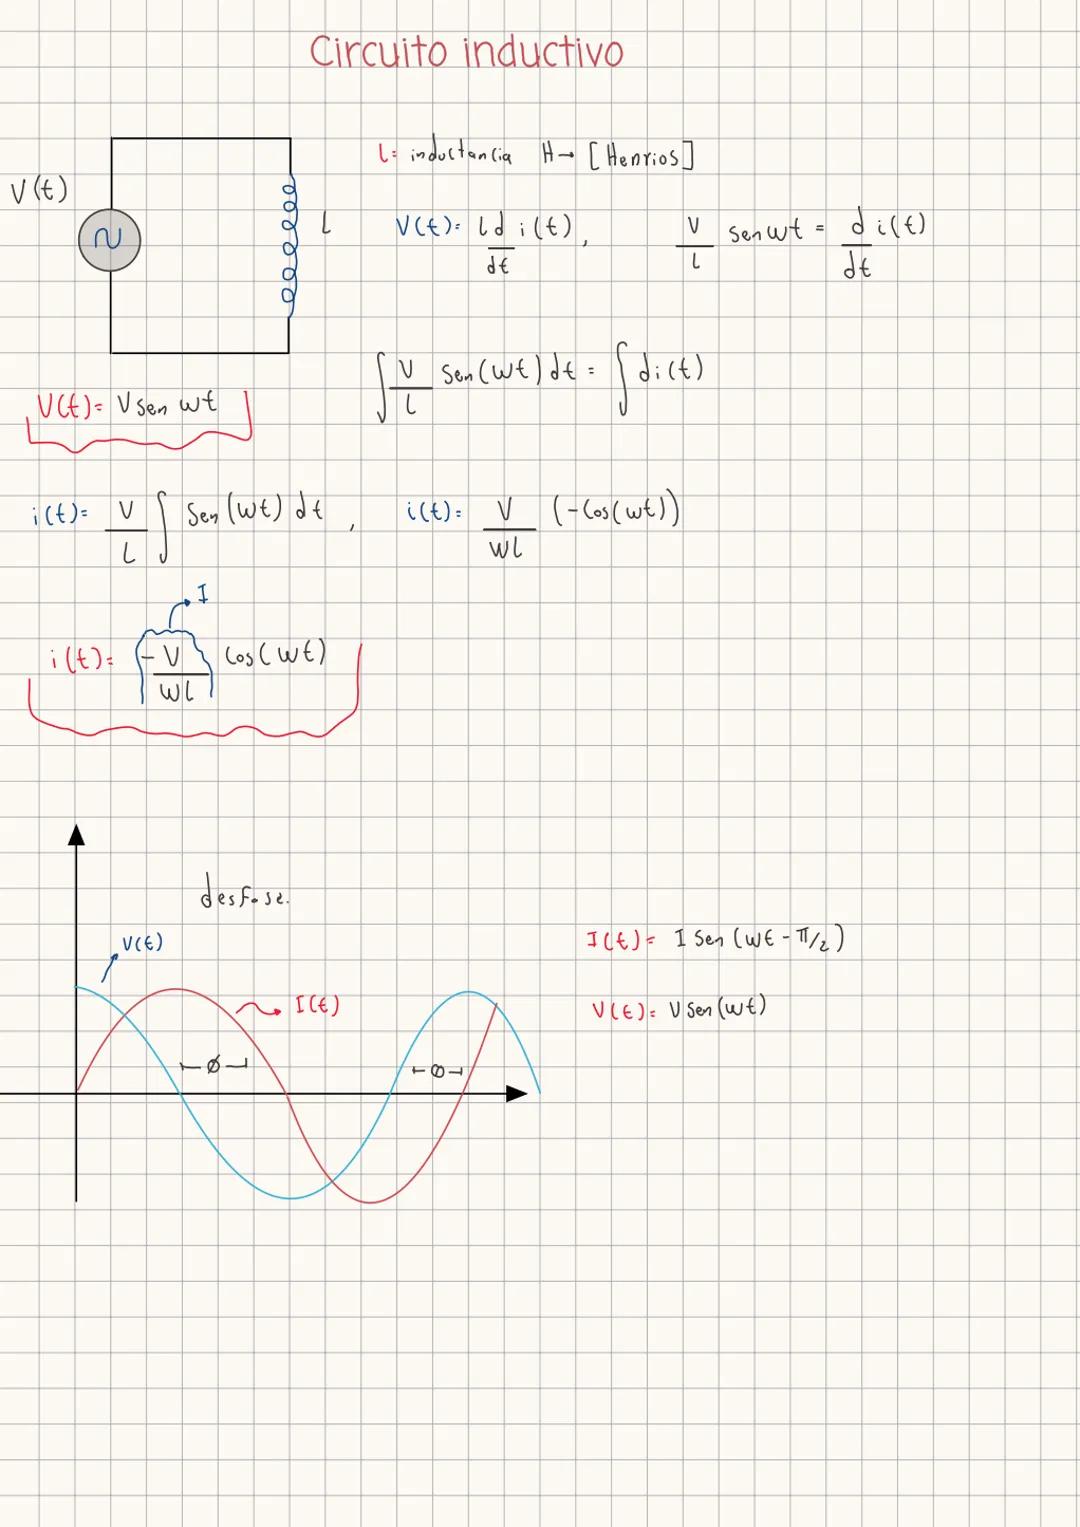 Circuito inductivo
V(t)
L
L= inductancia H→ [Henrios]
V(t)= L d/dt i(t), V/L sen wt = d/dt i(t)
∫ V/L Sen(wt) dt = ∫ di(t)
V(t)= V Sen wt
i(t)= V/L ∫ Sen(wt) dt, i(t)= V/WL (-Cos(wt))
I
i(t)= -V/WL Cos(wt)
desfase.
V(t)
I(t)
Ø
Ø
I(t)= I Sen(wt - π/2)
V(t)= V Sen(wt)